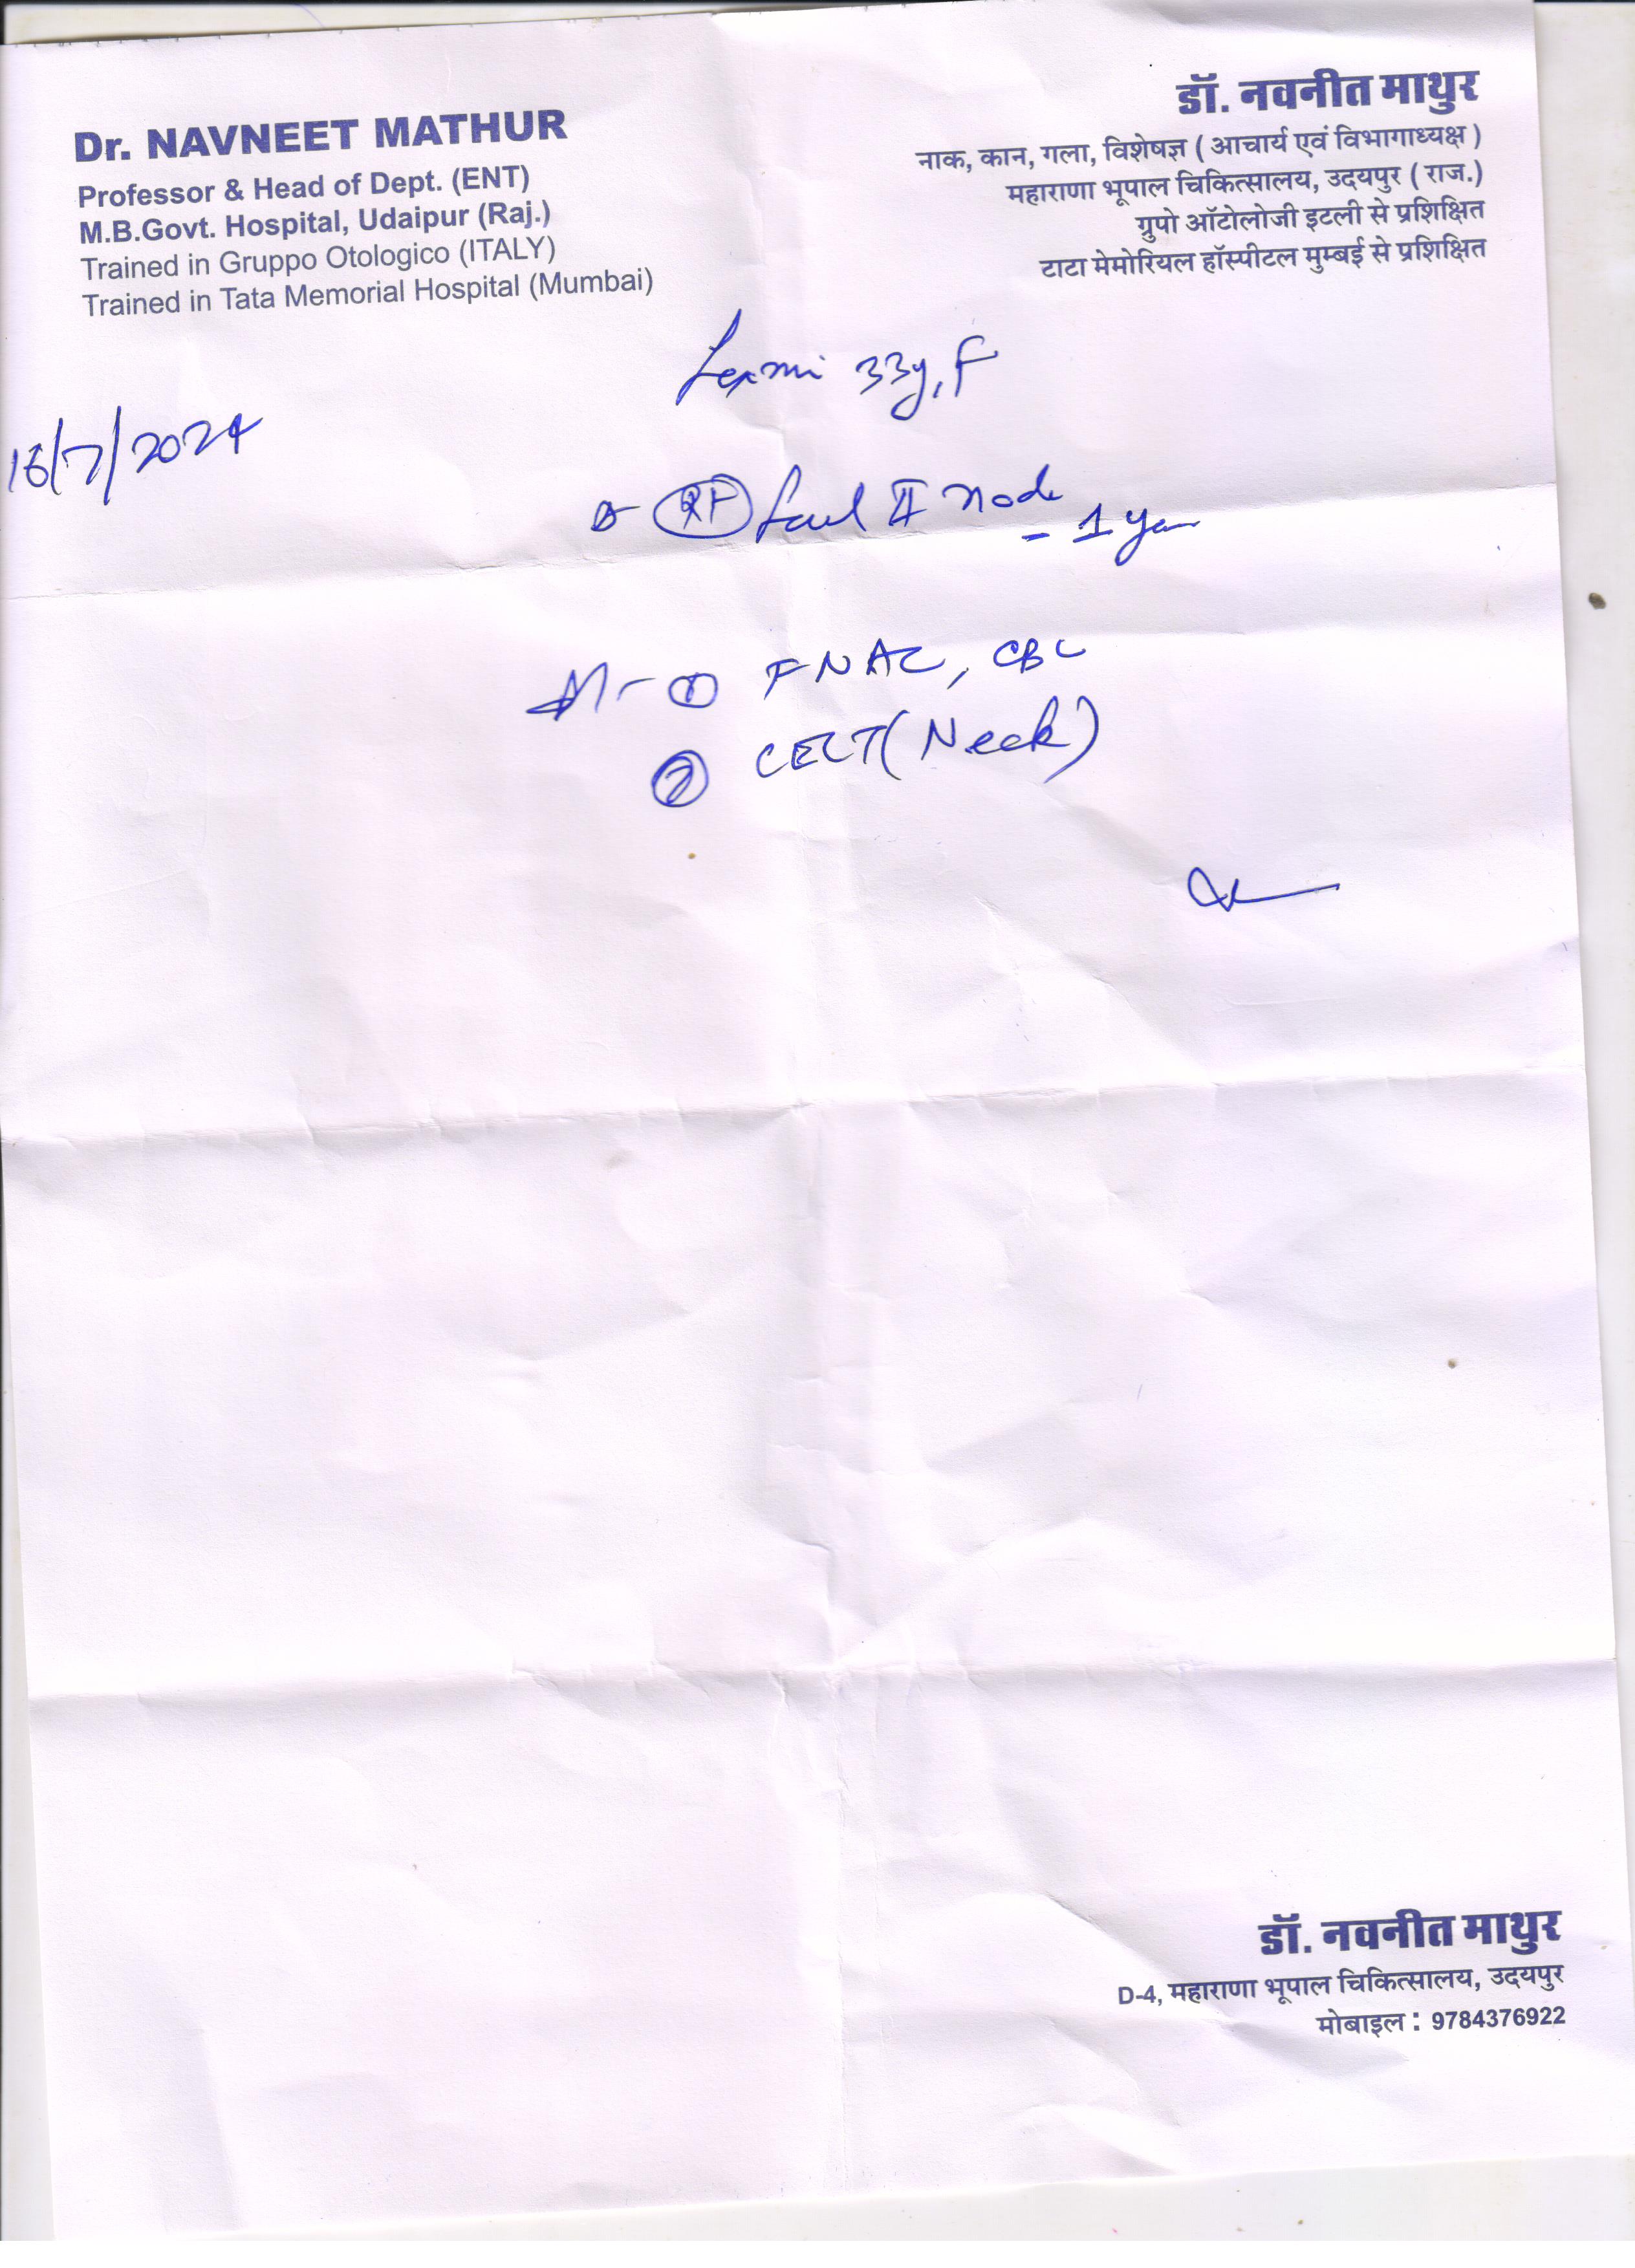 Dr. NAVNEET MATHUR
Professor & Head of Dept. (ENT)
M.B.Govt. Hospital, Udaipur (Raj.)
Trained in Gruppo Otologico (ITALY)
Trained in Tata Memorial Hospital (Mumbai)
डॉ. नवनीत माथुर
नाक, कान, गला, विशेषज्ञ ( आचार्य एवं विभागाध्यक्ष )
महाराणा भूपाल चिकित्सालय, उदयपुर ( राज.)
ग्रुपो ऑटोलोजी इटली से प्रशिक्षित
टाटा मेमोरियल हॉस्पीटल मुम्बई से प्रशिक्षित
Laxmi 33y, F
16/7/2024
II node
- 1 year
① FNAC, CBC
② CECT (Neck)
डॉ. नवनीत माथुर
D-4, महाराणा भूपाल चिकित्सालय, उदयपुर
मोबाइल : 9784376922